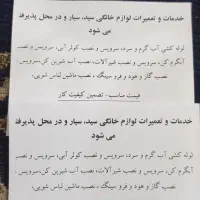 خدمات و تعمیرات لوازم خانگی سید، سیار و در محل پذیرفته
می شود
لوله کشی آب گرم و سرد، سرویس و نصب کولر آبی، سرویس و نصب
آبگرم کن، سرویس و نصب شیرآلات، نصب آب شیرین کن، سرویس
نصب گاز و هود و فرو سینگ ، نصب ماشین لباس شویی،
قیمت مناسب- تضمین کیفیت کار
خدمات و تعمیرات لوازم خانگی سید، سیار و در محل پذیرف
می شود
لوله کشی آب گرم و سرد، سرویس و نصب کولر آبی، سرویس و نصب
آبگرم کن، سرویس و نصب شیرآلات، نصب آب شیرین کن، سرویس و
نصب گاز و هود و فرو سینگ ، نصب ماشین لباس شویی،